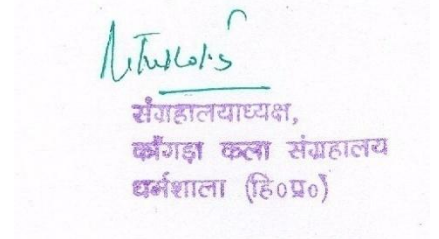 संग्रहालयाध्यक्ष,
काँगड़ा कला संग्रहालय
धर्मशाला (हि०प्र०)